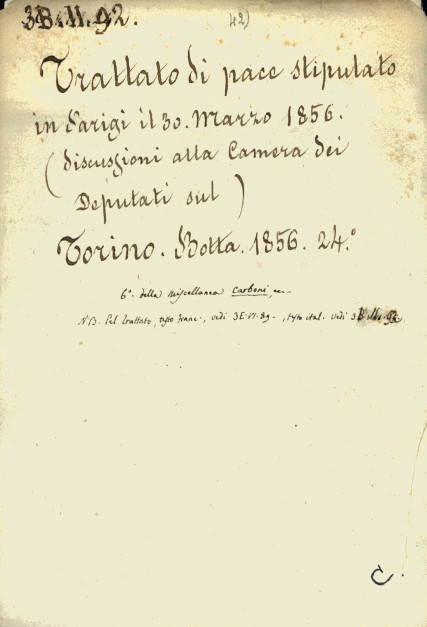 3B.II.92.
42)
Trattato di pace stipulato
in Parigi il 30. Marzo 1856.
(discussioni alla Camera dei
Deputati sul)
Torino. Botta. 1856. 24.°
6°. della Miscellanea Carboni,
NB. Pel trattato, testo franc., vedi 3E.VI.89., testo ital. vedi 3B.II.92.
C.